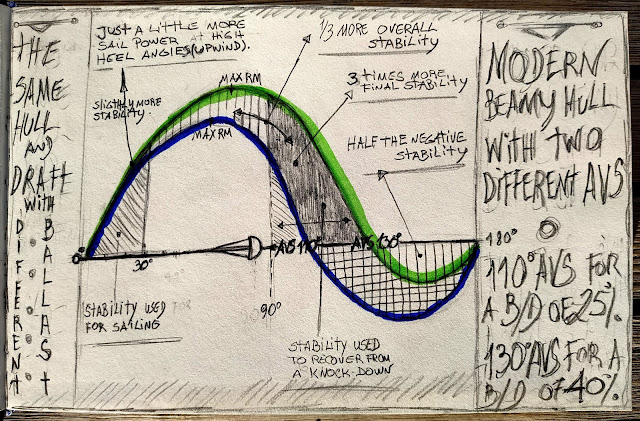 THE
SAME
HULL
AND
DRAFT
WITH
DIFFERENT
BALLAST
JUST A LITTLE MORE
SAIL POWER AT HIGH
HEEL ANGLES (UPWIND).
SLIGHTLY MORE
STABILITY.
MAX RM
MAX RM
1/3 MORE OVERALL
STABILITY
3 TIMES MORE
FINAL STABILITY
HALF THE NEGATIVE
STABILITY
0
30°
90°
AVS 110°
AVS 130°
180°
STABILITY USED
FOR SAILING
STABILITY USED
TO RECOVER FROM
A KNOCK-DOWN
MODERN
BEAMY HULL
WITH TWO
DIFFERENT AVS
110° AVS FOR
A B/D OF 25%.
130° AVS FOR A
B/D OF 40%.